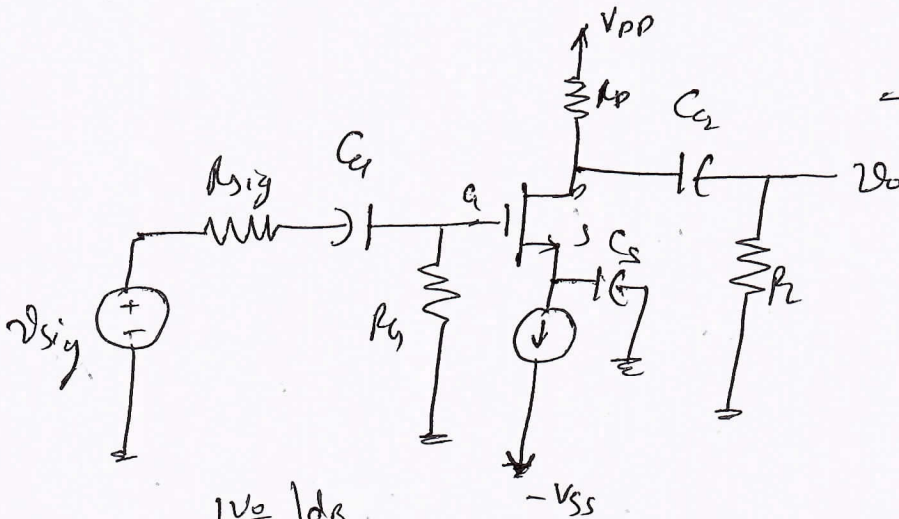 VDD
RD
CC2
Rsig
CC1
G
D
S
CS
vo
+
-
vsig
RG
RL
-VSS
|Vo |dB